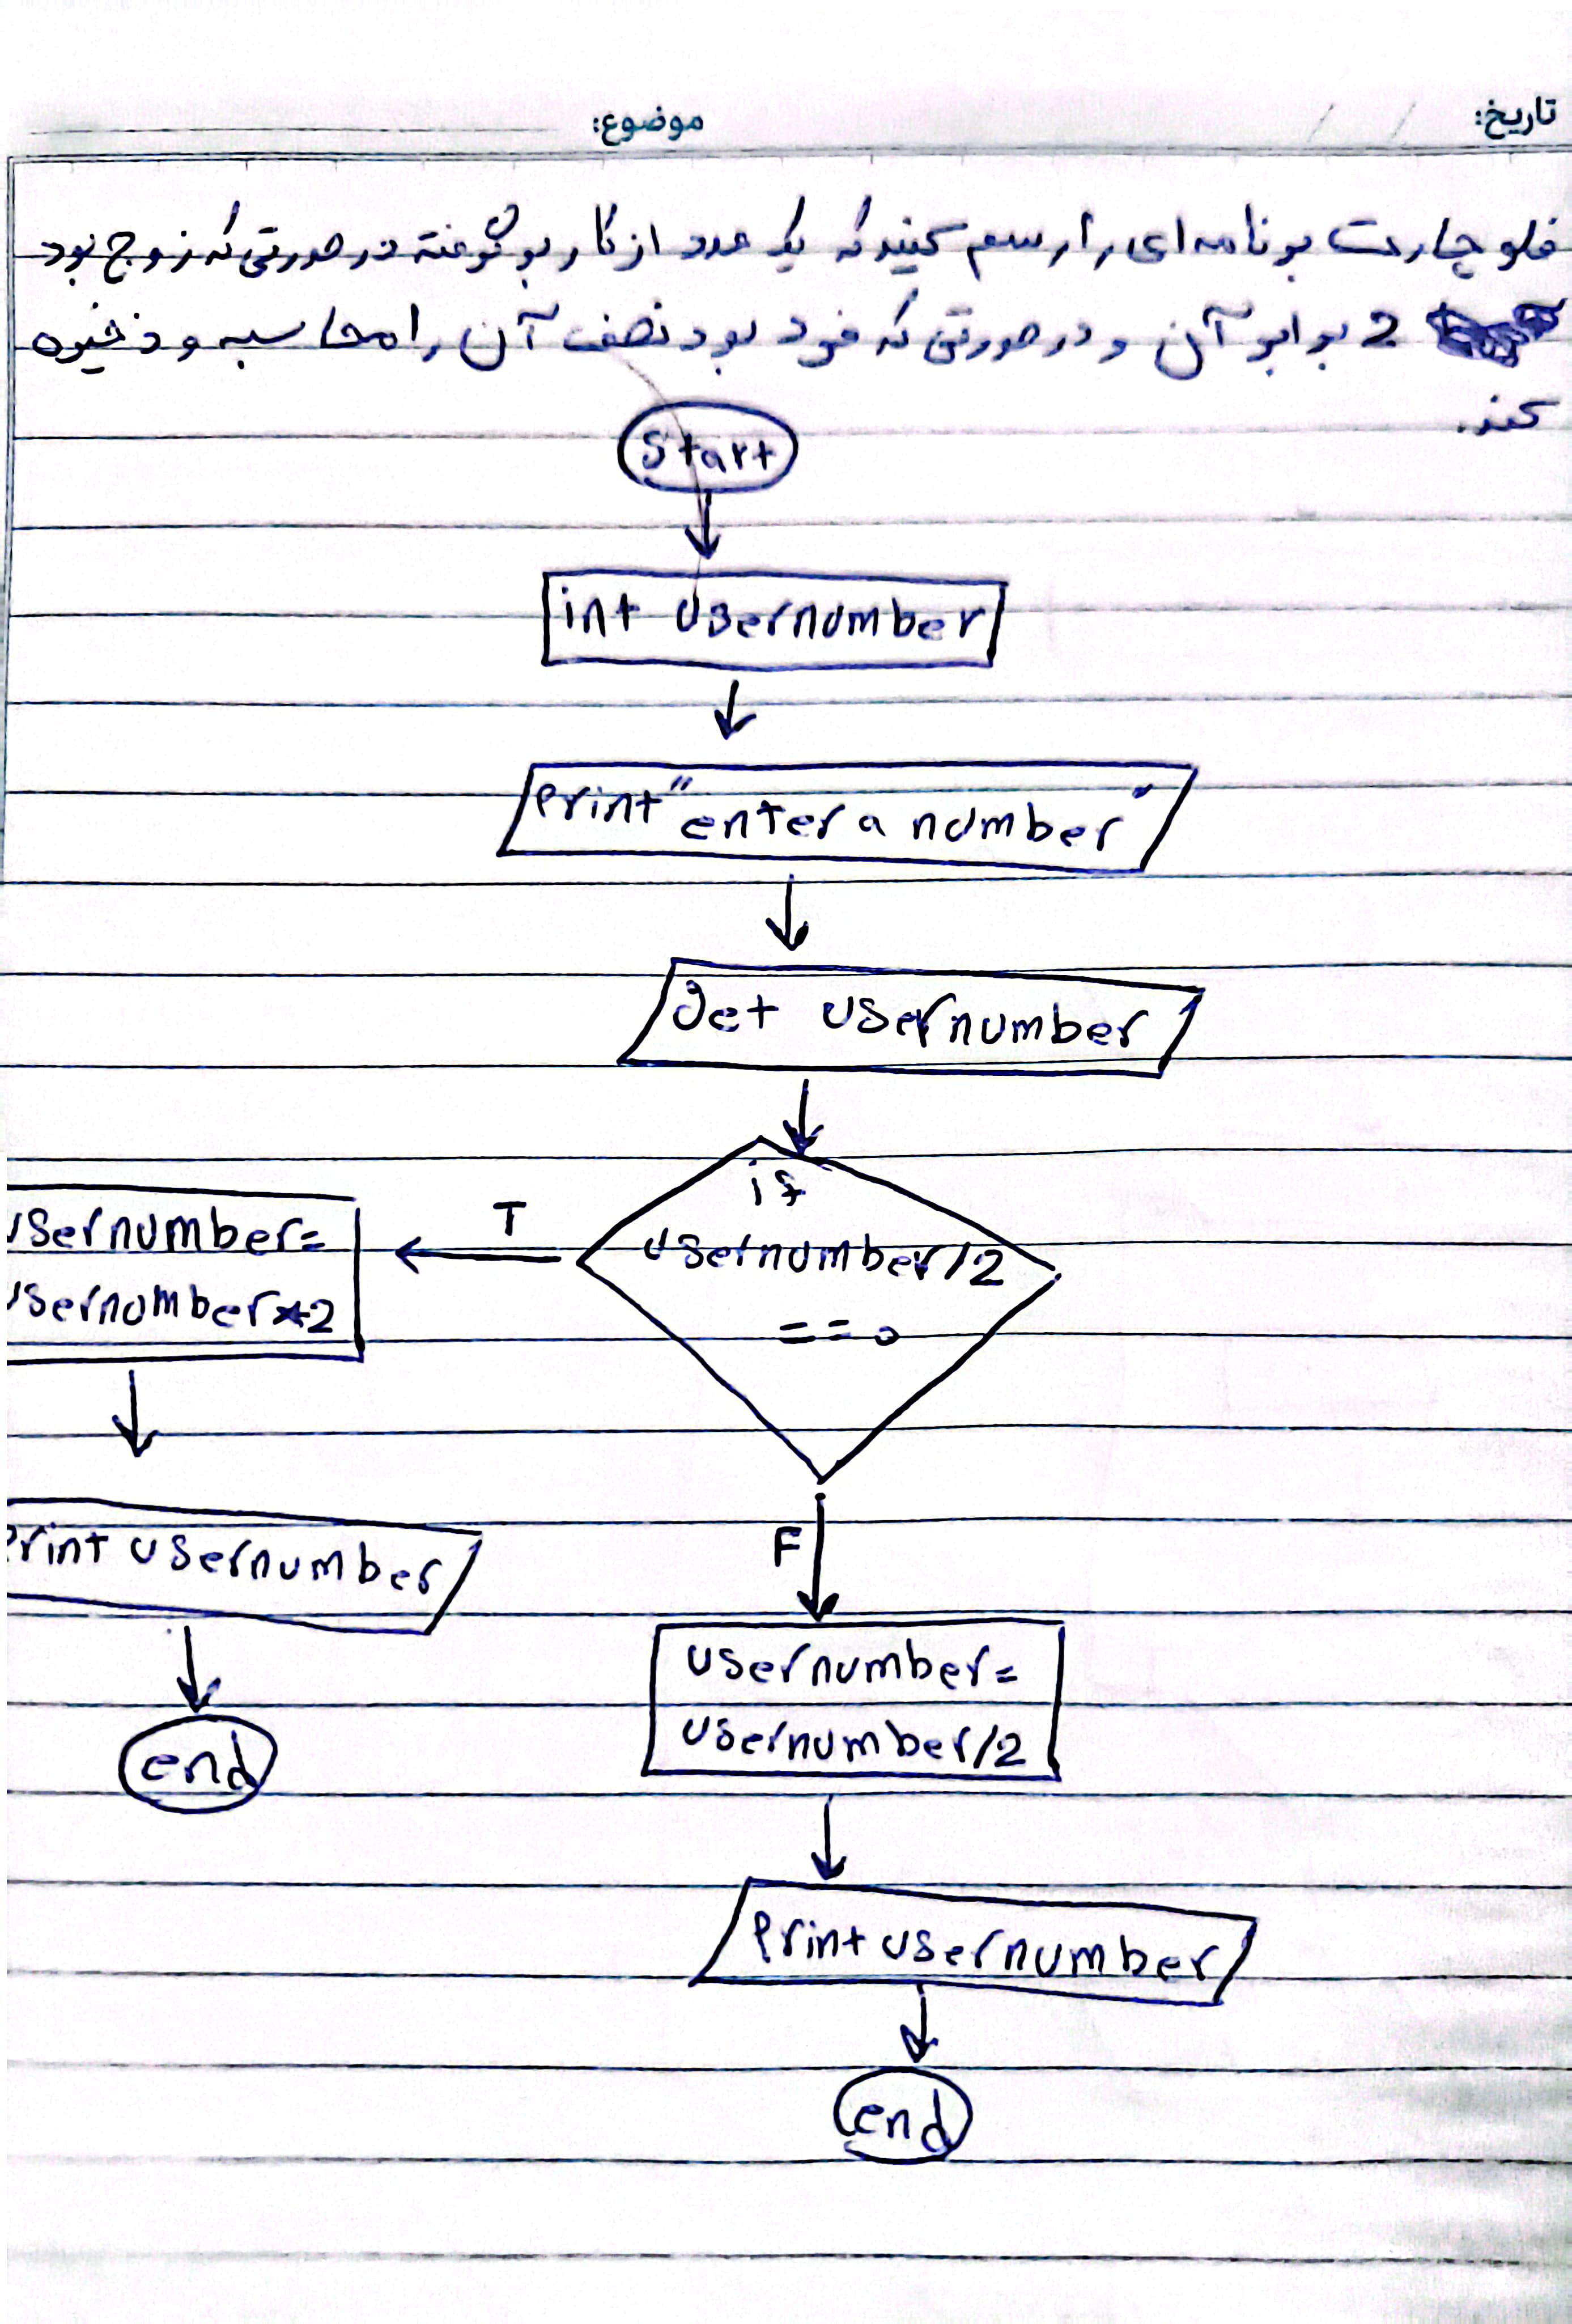 تاریخ: / / موضوع:
فلوچارت برنامه ای را رسم کنید که یک عدد از کاربر گرفته در صورتی که زوج بود
2 برابر آن و در صورتی که فرد بود نصف آن را محاسبه و ذخیره
کند.
Start
int usernumber
Print "enter a number"
Get usernumber
if
usernumber/2
== 0
T
usernumber=
usernumber*2
Print usernumber
end
F
usernumber=
usernumber/2
Print usernumber
end